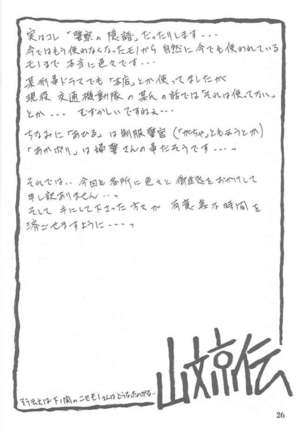 実はコレ「警察の隠語」だったりします...
今ではもう使われなくなったモノから自然に今でも使われている
モノまで本当に色々です...
某刑事ドラマでも「本店」とか使ってましたが
現役交通機動隊の某氏の話では「それは使ってない」
とか... むずかしいですねェ...
ちなみに「あひる」は制服警官(「がちゃ」ともゆうとか)
「あかポリ」は婦警さんの事だそうです...。
それでは..今回も各所に色々と御迷惑をおかけして
申し訳ありません...。
そして手にして下さった方々が有意義な時間を
過ごせますように...。
26